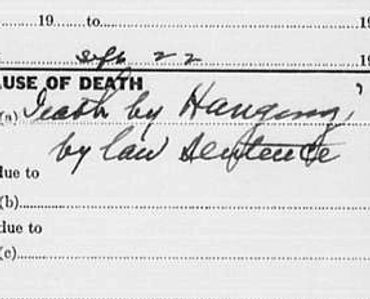 19 to 19
Sept 22 19
USE OF DEATH
(a) Death by Hanging,
by law sentence
due to
(b)
due to
(c)